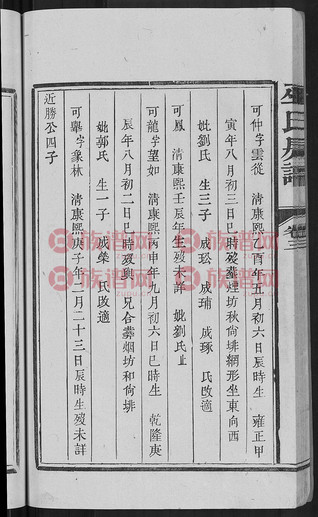 巫氏房譜
卷三
可仲字雲從 清康熙乙酉年五月初六日辰時生 雍正甲
寅年八月初三日巳時歿葬煙坊秋尙排網形坐東向西
妣劉氏 生三子 成珍 成瑀 成琢 氏改適
可鳳 清康熙壬辰年生歿未詳 妣劉氏止
可龍字望如 清康熙丙申年九月初六日巳時生 乾隆庚
辰年八月初二日巳時歿與兄合葬烟坊和尙排
妣郭氏 生一子 成榮 氏改適
可舉字象林 清康熙庚子年二月二十三日辰時生歿未詳
近勝公四子
族譜网
族譜网
族譜网
族譜网